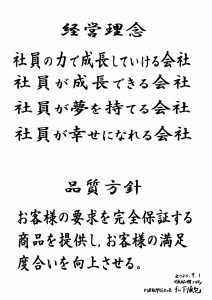 経営理念
社員の力で成長していける会社
社員が成長できる会社
社員が夢を持てる会社
社員が幸せになれる会社
品質方針
お客様の要求を完全保証する
商品を提供し、お客様の満足
度合いを向上させる。
2020.9.1